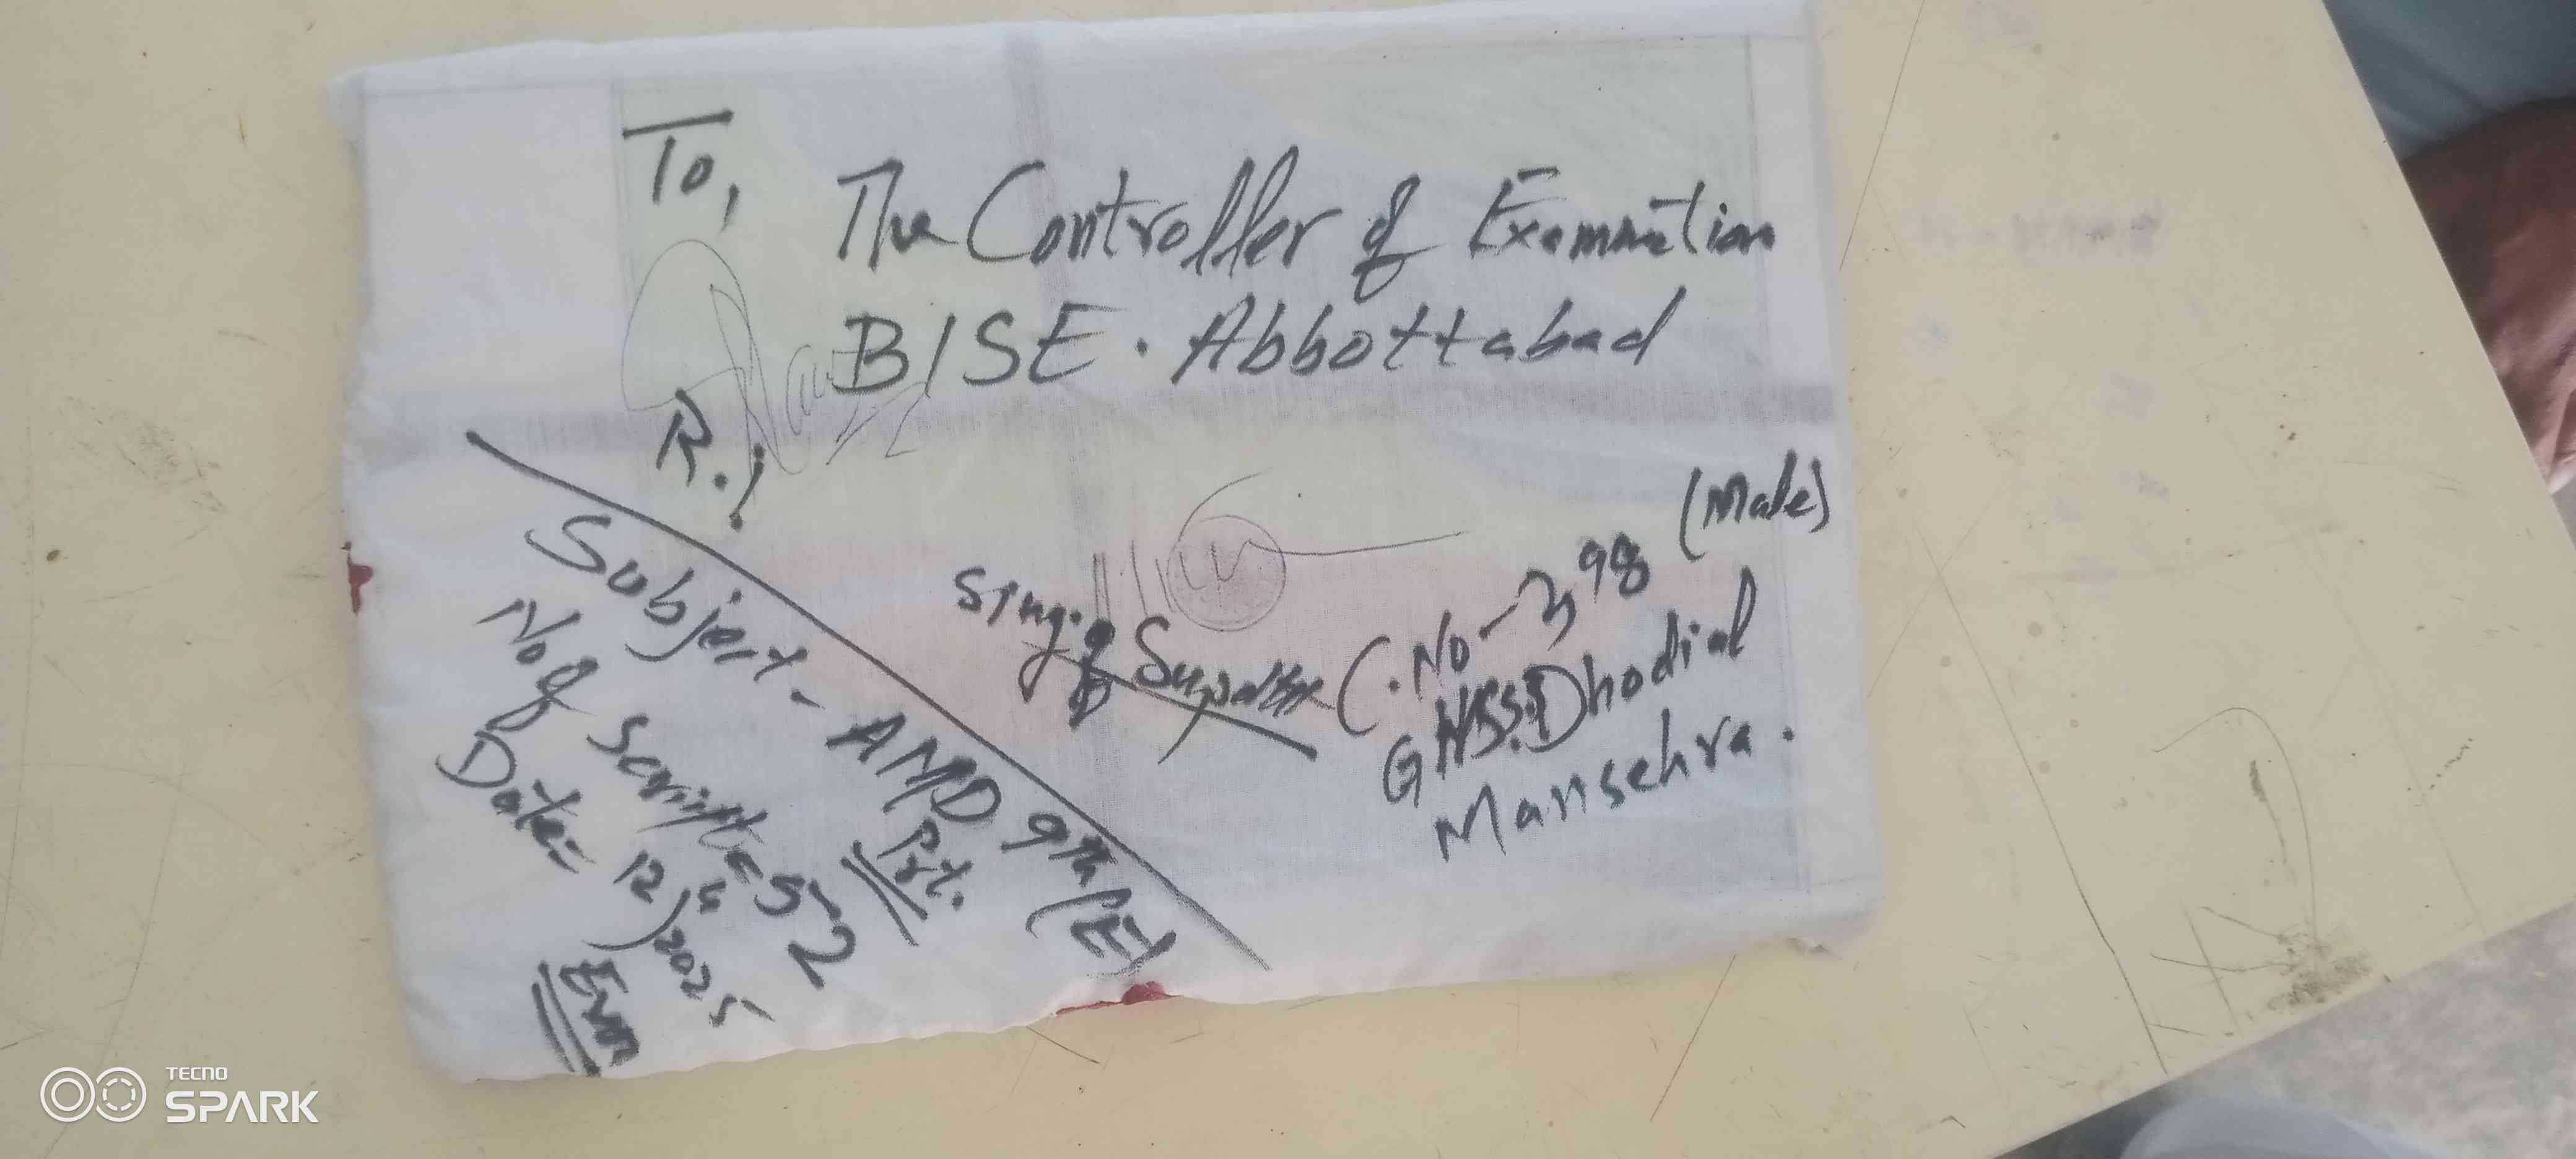 To,
The Controller of Examination
BISE. Abbottabad
R.
Sing. of Supdtt
C.No-398 (Male)
GHSS. Dhodial
Mansehra.
Subject - AMD 9th (E)
Prt.
No of Scripts = 52
Date = 12/4/2025
Eve
TECNO
SPARK